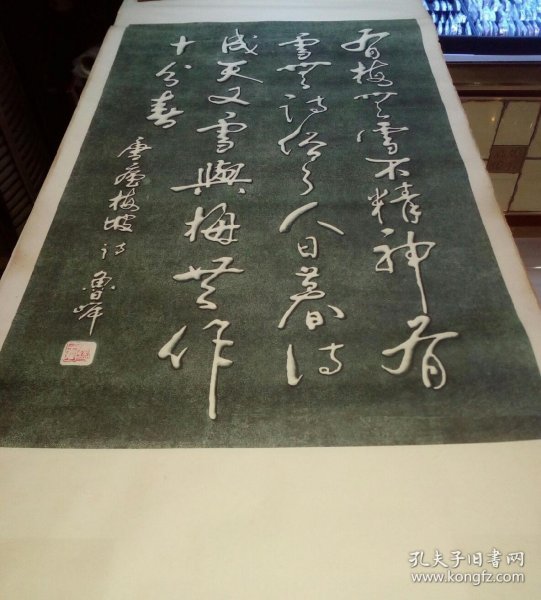 有梅無雪不精神有
雪無詩俗了人日暮詩
成天又雪與梅并作
十分春
盧梅坡詩 魯峰
孔夫子旧书网
www.kongfz.com